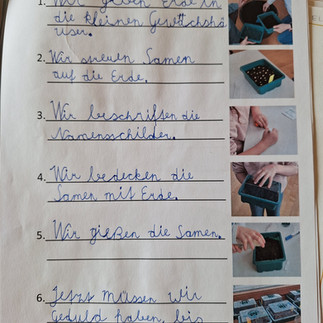 1. Wir geben Erde in
die kleinen Gewächshä
user.
2. Wir streuen Samen
auf die Erde.
3. Wir beschriften die
Namensschilder.
4. Wir bedecken die
Samen mit Erde.
5. Wir gießen die Samen.
6. Jetzt müssen wir
Geduld haben, bis